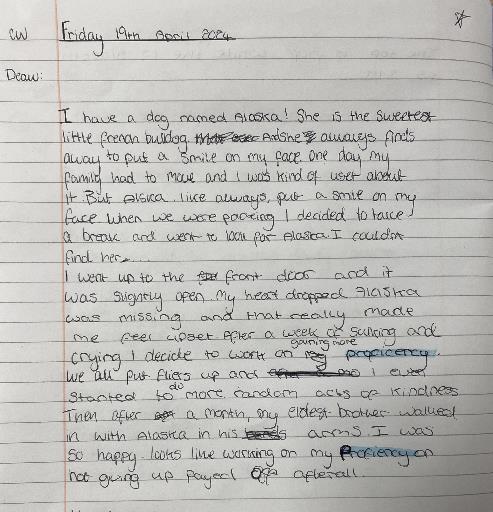 CW Friday 19th April 2024
Deaw:
I have a dog named Alaska! She is the sweetest
little french bulldog And she always finds
away to put a smile on my face one day my
family had to move and I was kind of uset about
it. But Alska like always, put a smile on my
face when we were packing I decided to take
a break and went to look for Alaska I couldnt
find her...
I went up to the front door and it
was slightly open my heart dropped Alaska
was missing and that really made
me feel upset After a week of sulking and
crying I decide to work on gaining more proficency
We all put fliers up and I even
started to do more random acts of kindness
Then after a month, my eldest brother walked
in with Alaska in his arms I was
so happy. looks like working on my Proficiency on
not giving up payed off afterall.